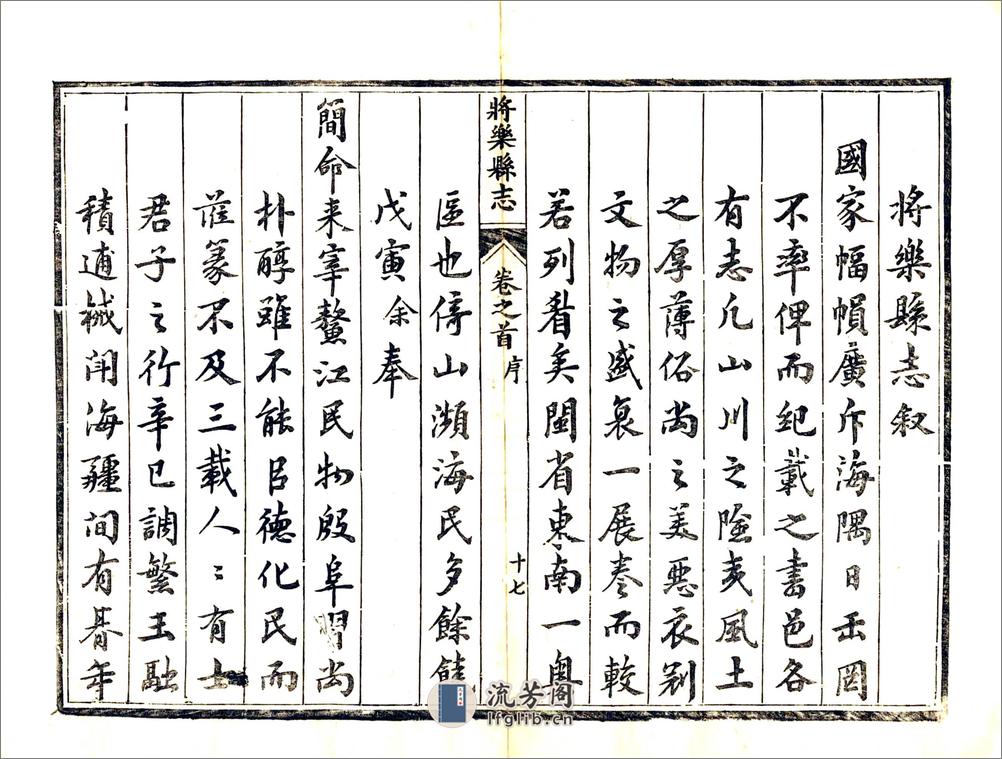 將樂縣志叙
國家幅幀廣斥海隅日出罔
不率俾而紀載之書邑各
有志凡山川之險夷風土
之厚薄俗尚之美惡衣剝
文物之盛衰一展卷而較
若列眉矣閩省東南一奧
區也傍山瀕海民多餘饒
戊寅余奉
簡命来宰鰲江民物殷阜習尚
朴醇雖不能以德化民而
萑苻不及三載人〻有士
君子之行辛巳調繁玉融
積逋
闻海疆间有朞年
將樂縣志
卷之首
序
十七
流芳阁
lfglib.cn